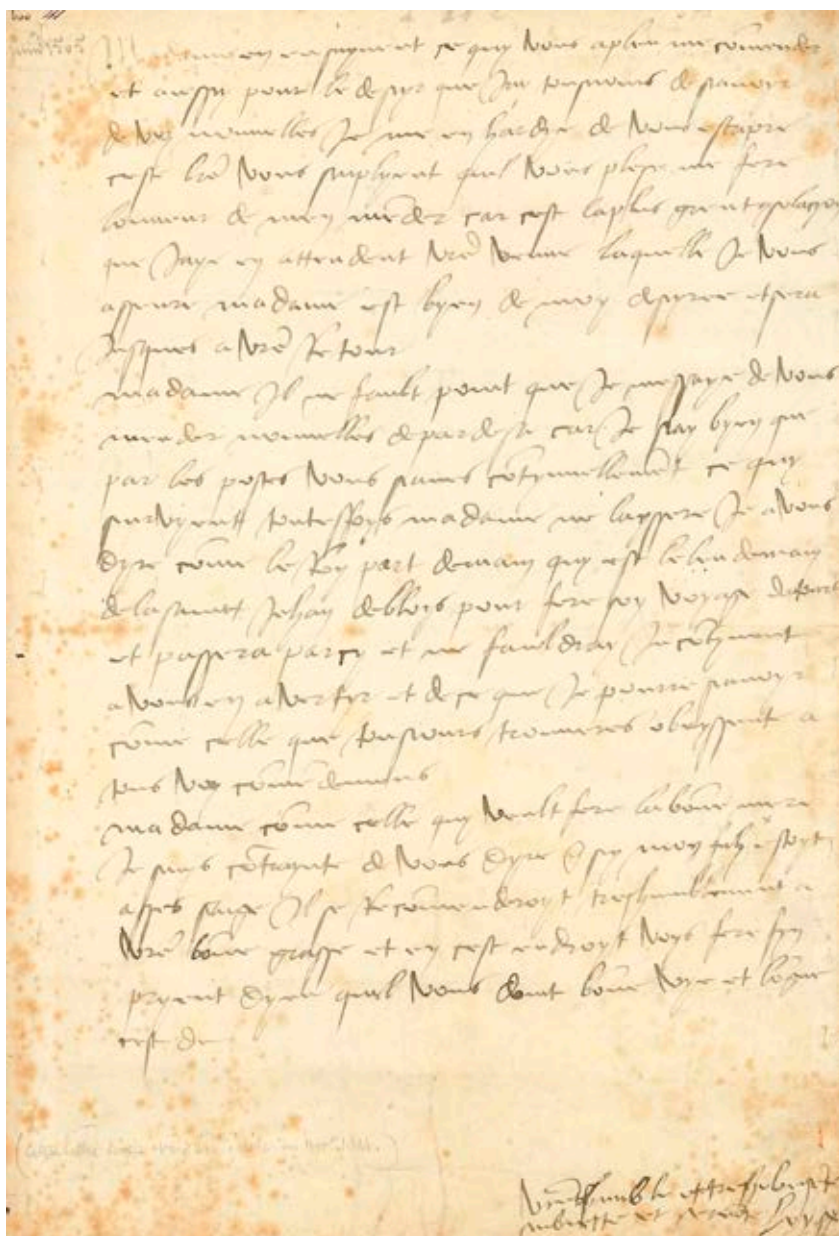 juing 1505
Madame en ensuyvent ce quy vous a pleu me comender
et aussy pour le desyr que jay tousiours de scavoyr
de voz nouvelles je me enhardye de vous escripre
ceste lrē vous suplyent quil vous plese me fere
lonneur de men mēder car cest la plus grent cōsolasyon
que jaye en attendent vrē venue laquelle je vous
asseure madame est byen de moy desyree et sera
jusques a vrē retour
madame il ne fault point que je messaye de vous
mender nouvelles de par desa car je say byen que
par les postes vous saves cōtynuellement ce quy
survyent touteffoys madame ne layssere je a vous
dyre come le Roy part demain quy est le lendemain
de la saint Jehan de bloys pour fere son voyage
et passera par cy et ne fauldray
a vous en avertyr et de ce que je pourre scavoyr
come celle que tousiours trouveres obeyssente a
tous voz comēdemens
madame come celle quy veult fere la bone mere
je suys cōtraynte de vous dyre sy mon filz estoyt
asses saige il se Recomenderoyt treshumblement a
vrē bone grasse et en cest endroyt voys fere fin
pryent dyeu quil vous doint bone vye et longue
cest de
vrē treshumble et tresobeissente
subiette et servente Loyse